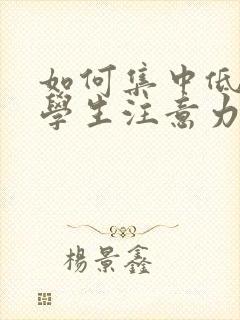 如何集中低
學生注意力
楊景鑫